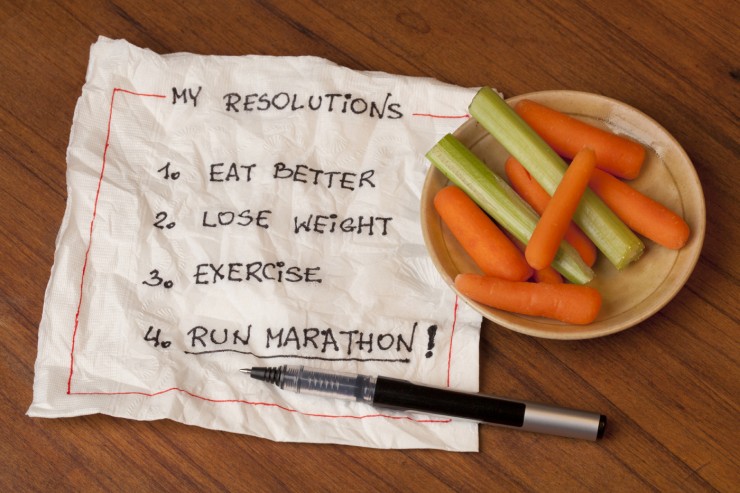 MY RESOLUTIONS
1. EAT BETTER
2. LOSE WEIGHT
3. EXERCISE
4. RUN MARATHON!